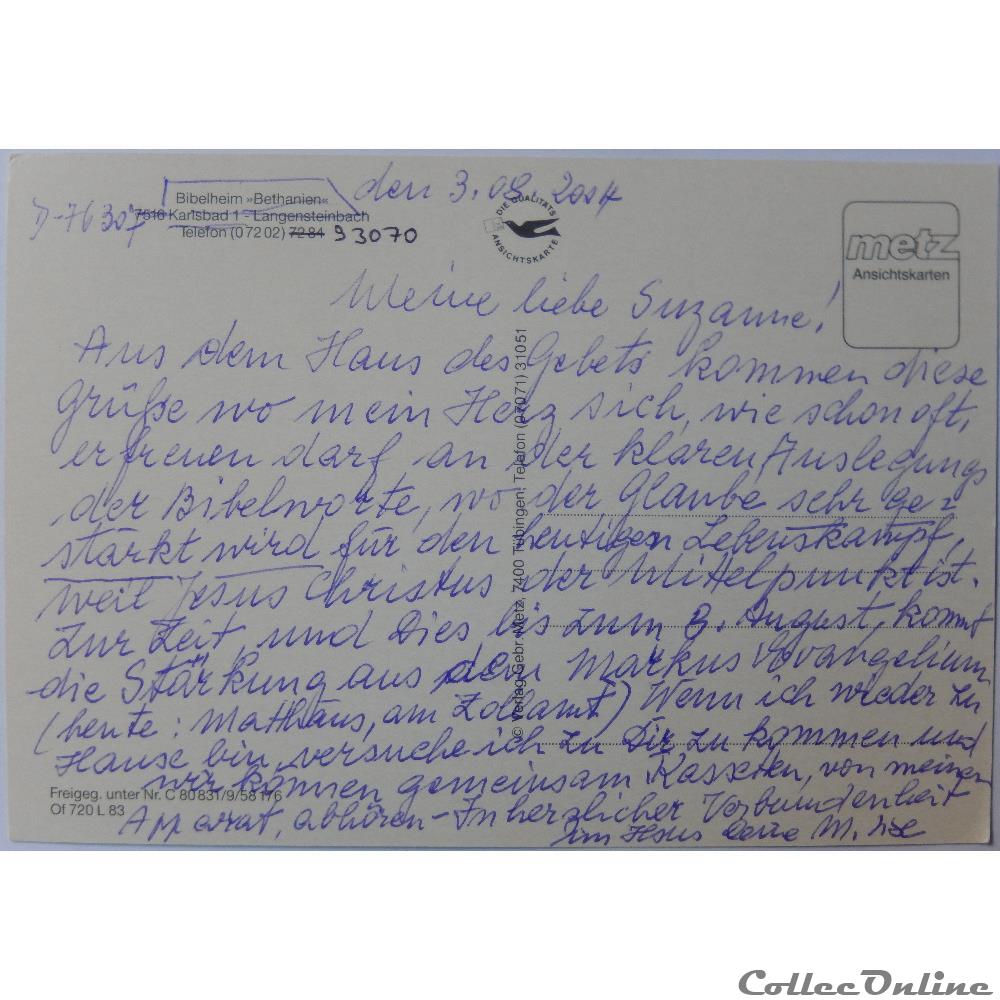 Bibelheim »Bethanien« den 3.08.2014
D-76307 7516 Karlsbad 1 - Langensteinbach
Telefon (0 72 02) 72 84 93070
DIE QUALITÄTS
ANSICHTSKARTE
metz
Ansichtskarten
Meine liebe Suzanne!
Aus dem Haus des Gebets kommen diese
Grüße wo mein Herz sich, wie schon oft,
erfreuen darf an der klaren Auslegung
der Bibelworte, wo der Glaube sehr ge=
stärkt wird für den heutigen Lebenskampf,
weil Jesus Christus der Mittelpunkt ist.
Zur Zeit, und Dies bis zum 8. August, kommt
die Stärkung aus dem Markus Evangelium
(heute: Mathäus, am Zollamt) Wenn ich wieder zu
Hause bin, versuche ich zu Dir zu kommen und
wir können gemeinsam Kasseten, von meinem
Apparat, abhören - In herzlicher Verbundenheit
im Herrn Deine M.
© Verlag Gebr. Metz, 7400 Tübingen, Telefon (0 70 71) 3 10 51
Freigeg. unter Nr. C 80 831/9/58 176
Of 720 L 83
CollecOnline